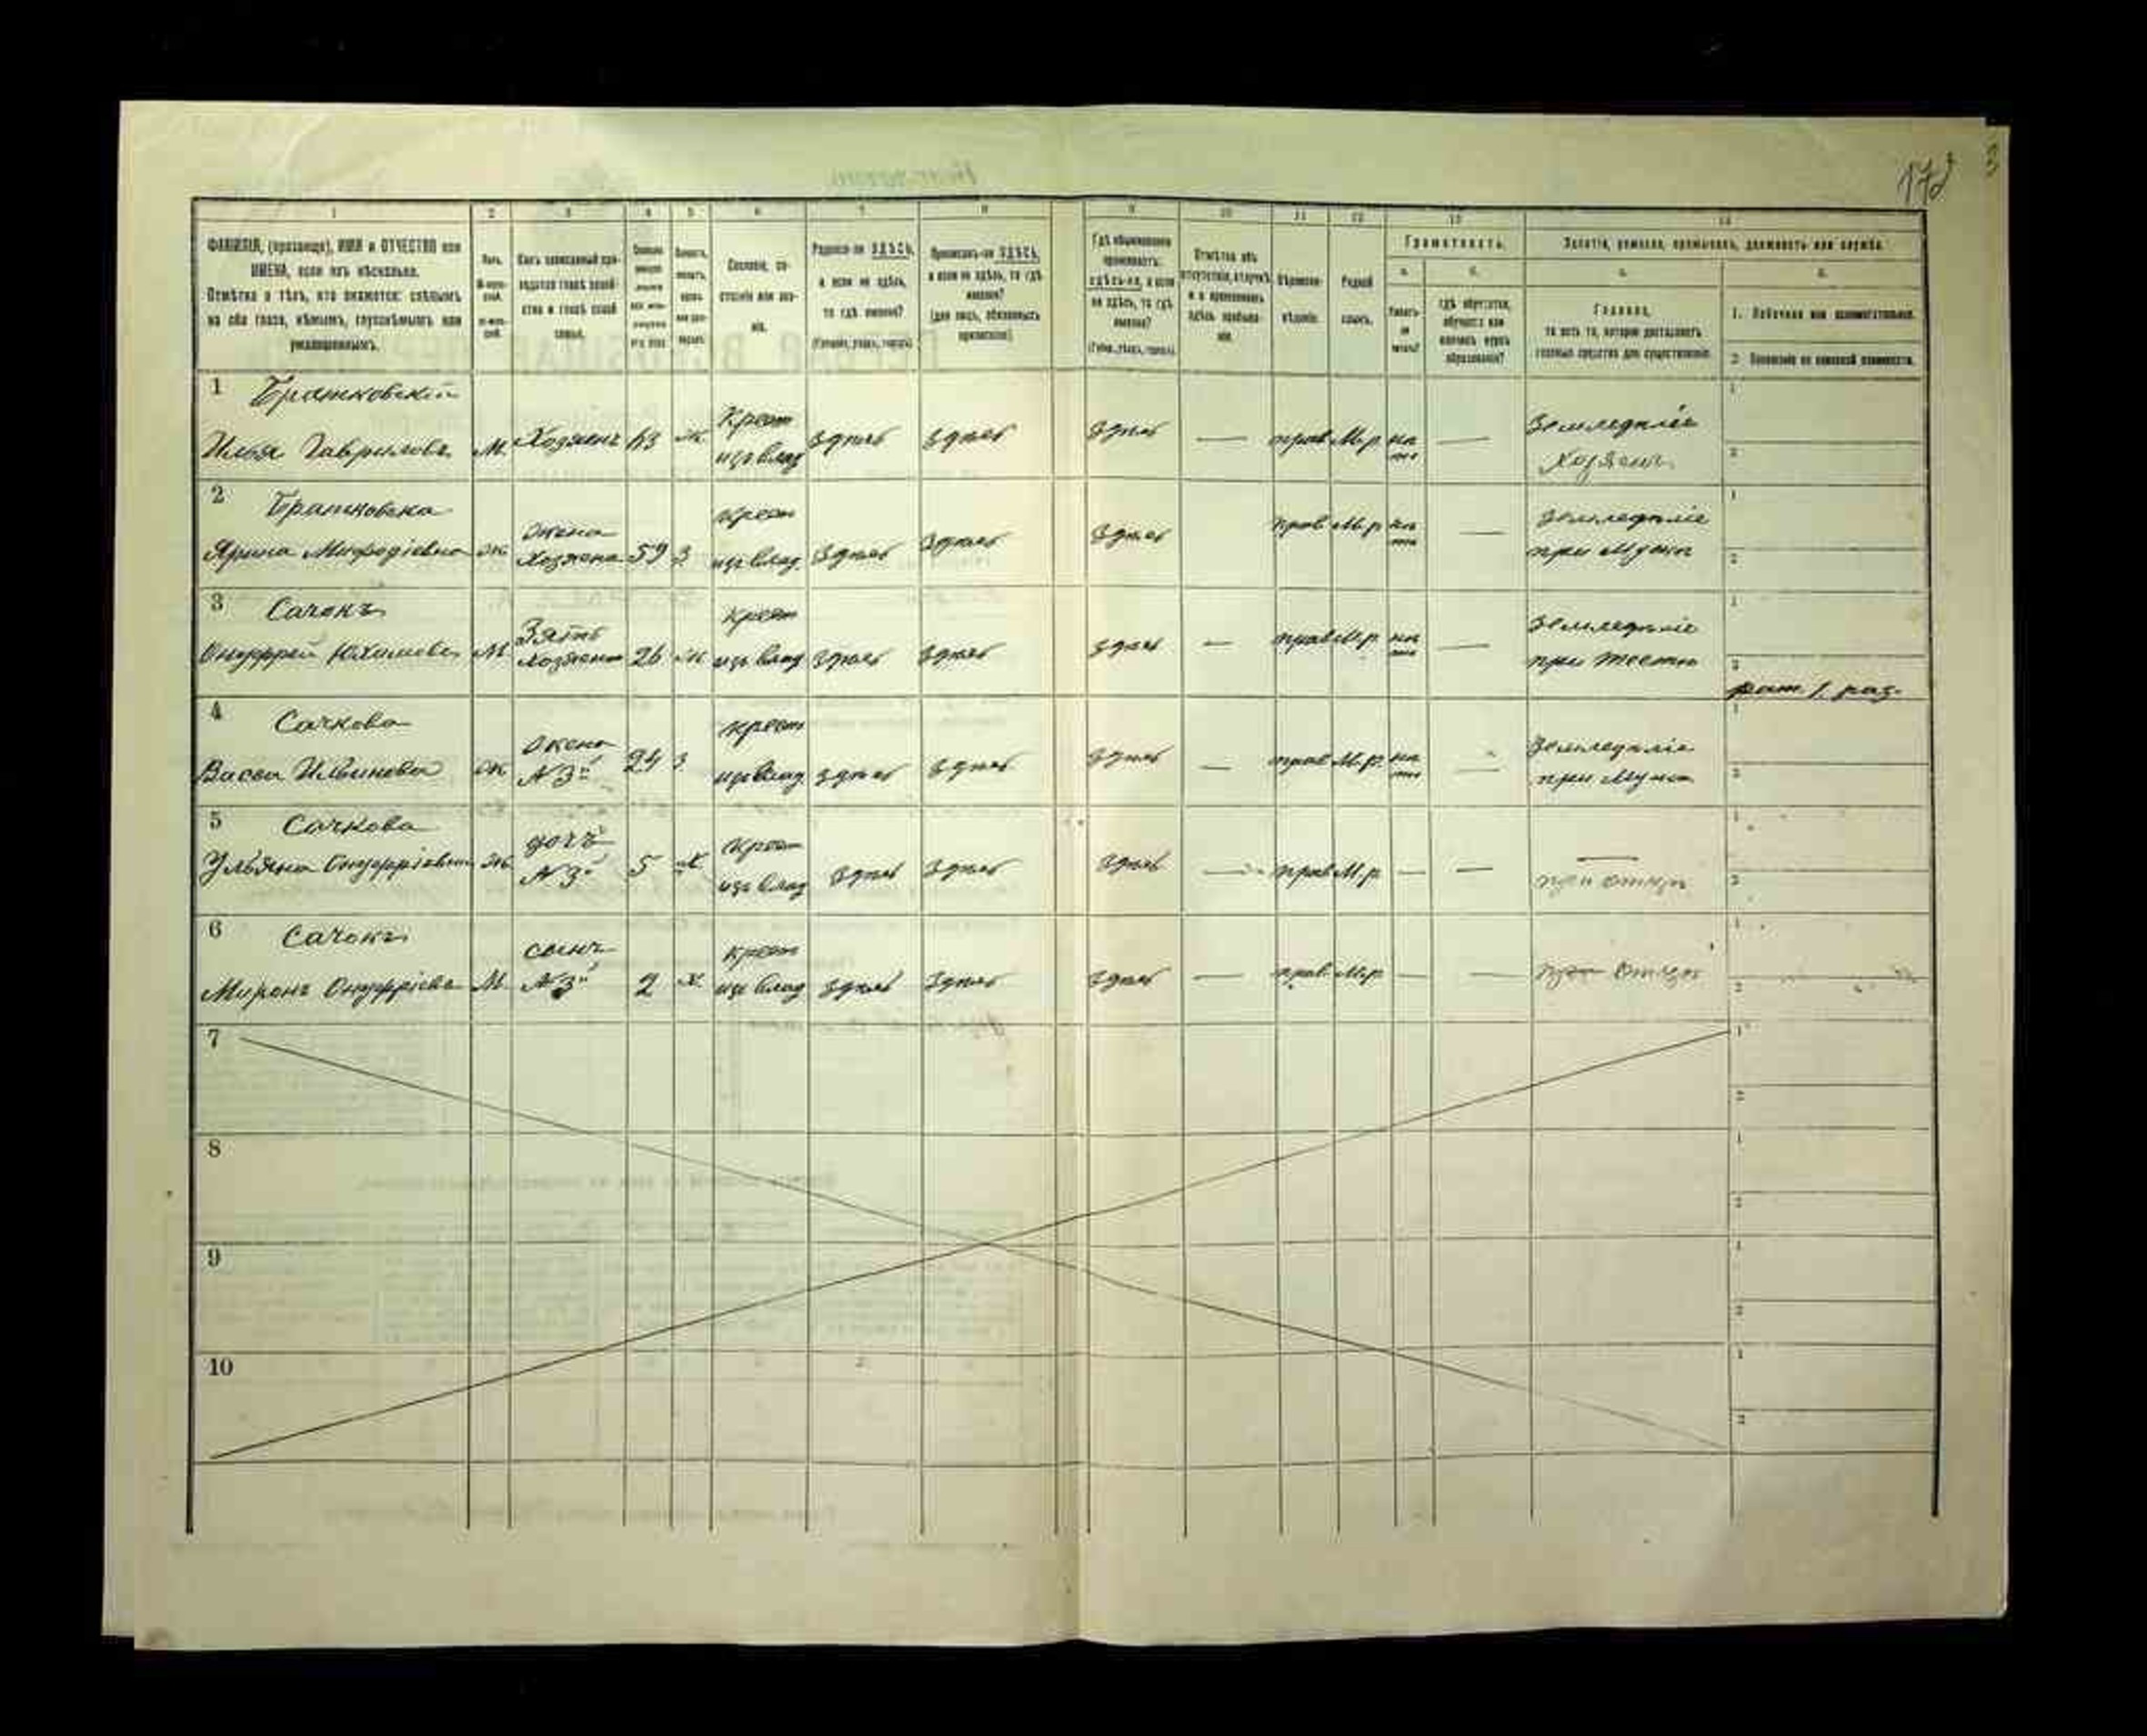 173
1 2 3 4 5 6 7 8 9 10 11 12 13 14
ФАМИЛІЯ, (прозвище), ИМЯ и ОТЧЕСТВО или
ИМЕНА, если ихъ нѣсколько.
Отмѣтка о тѣхъ, кто окажется: слѣпымъ
на оба глаза, нѣмымъ, глухонѣмымъ или
умалишеннымъ.
Полъ.
Какъ записанный при-
ходится главѣ хозяй-
ства и главѣ своей
семьи.
Сословіе, со-
стояніе или зва-
ніе.
Родился-ли ЗДѢСЬ,
а если не здѣсь,
то гдѣ именно?
(Губернія, уѣздъ, городъ)
Приписанъ-ли ЗДѢСЬ,
а если не здѣсь, то гдѣ
именно?
(для лицъ, обязанныхъ
припискою).
Гдѣ обыкновенно
проживаетъ:
здѣсь-ли, а если
не здѣсь, то гдѣ
именно?
(Губер., уѣздъ, городъ).
Отмѣтка объ
отсутствіи, отлучкѣ
и о временномъ
здѣсь пребыва-
ніи.
Вѣроиспо-
вѣданіе.
Родной
языкъ.
Грамотность.
а. б.
Умѣетъ-
ли
читать?
гдѣ обучается,
обучался или
кончилъ курсъ
образованія?
Занятіе, ремесло, промыселъ, должность или служба.
а. б.
Главное,
то есть то, которое доставляетъ
главныя средства для существованія.
1. Побочное или вспомогательное.
2. Положеніе по воинской повинности.
1 Братковскій
Илья Гавриловъ М. Хозяинъ 63 Ж Крест изъ влад здѣсь здѣсь здѣсь — прав М.р. нѣтъ — Земледѣліе Хозяинъ
2 Братковска
Ярина Мифодіевна ж жена Хозяина 59 З крест изъ влад. здѣсь здѣсь здѣсь прав М.р нѣтъ — Земледѣліе при Мужѣ
3 Сачокъ
Онуфрей Юхимовъ М Зять хозяина 26 ж крест изъ влад здѣсь здѣсь здѣсь — прав М.р. нѣтъ — Земледѣліе при тестѣ
рат. 1. раз.
4 Сачкова
Васса Ильинова ж жена №3й 24 З крест изъ влад. здѣсь здѣсь здѣсь — прав М.р. нѣтъ — Земледѣліе при Мужѣ
5 Сачкова
Ульяна Онуфріевна ж дочъ №3й 5 Х крест изъ влад здѣсь здѣсь здѣсь — прав М.р — — — при отцѣ
6 Сачокъ
Миронъ Онуфріевъ М. сынъ №3й 2 Х. крест изъ влад здѣсь здѣсь здѣсь — прав. М.р — — при отцѣ
7
8
9
10